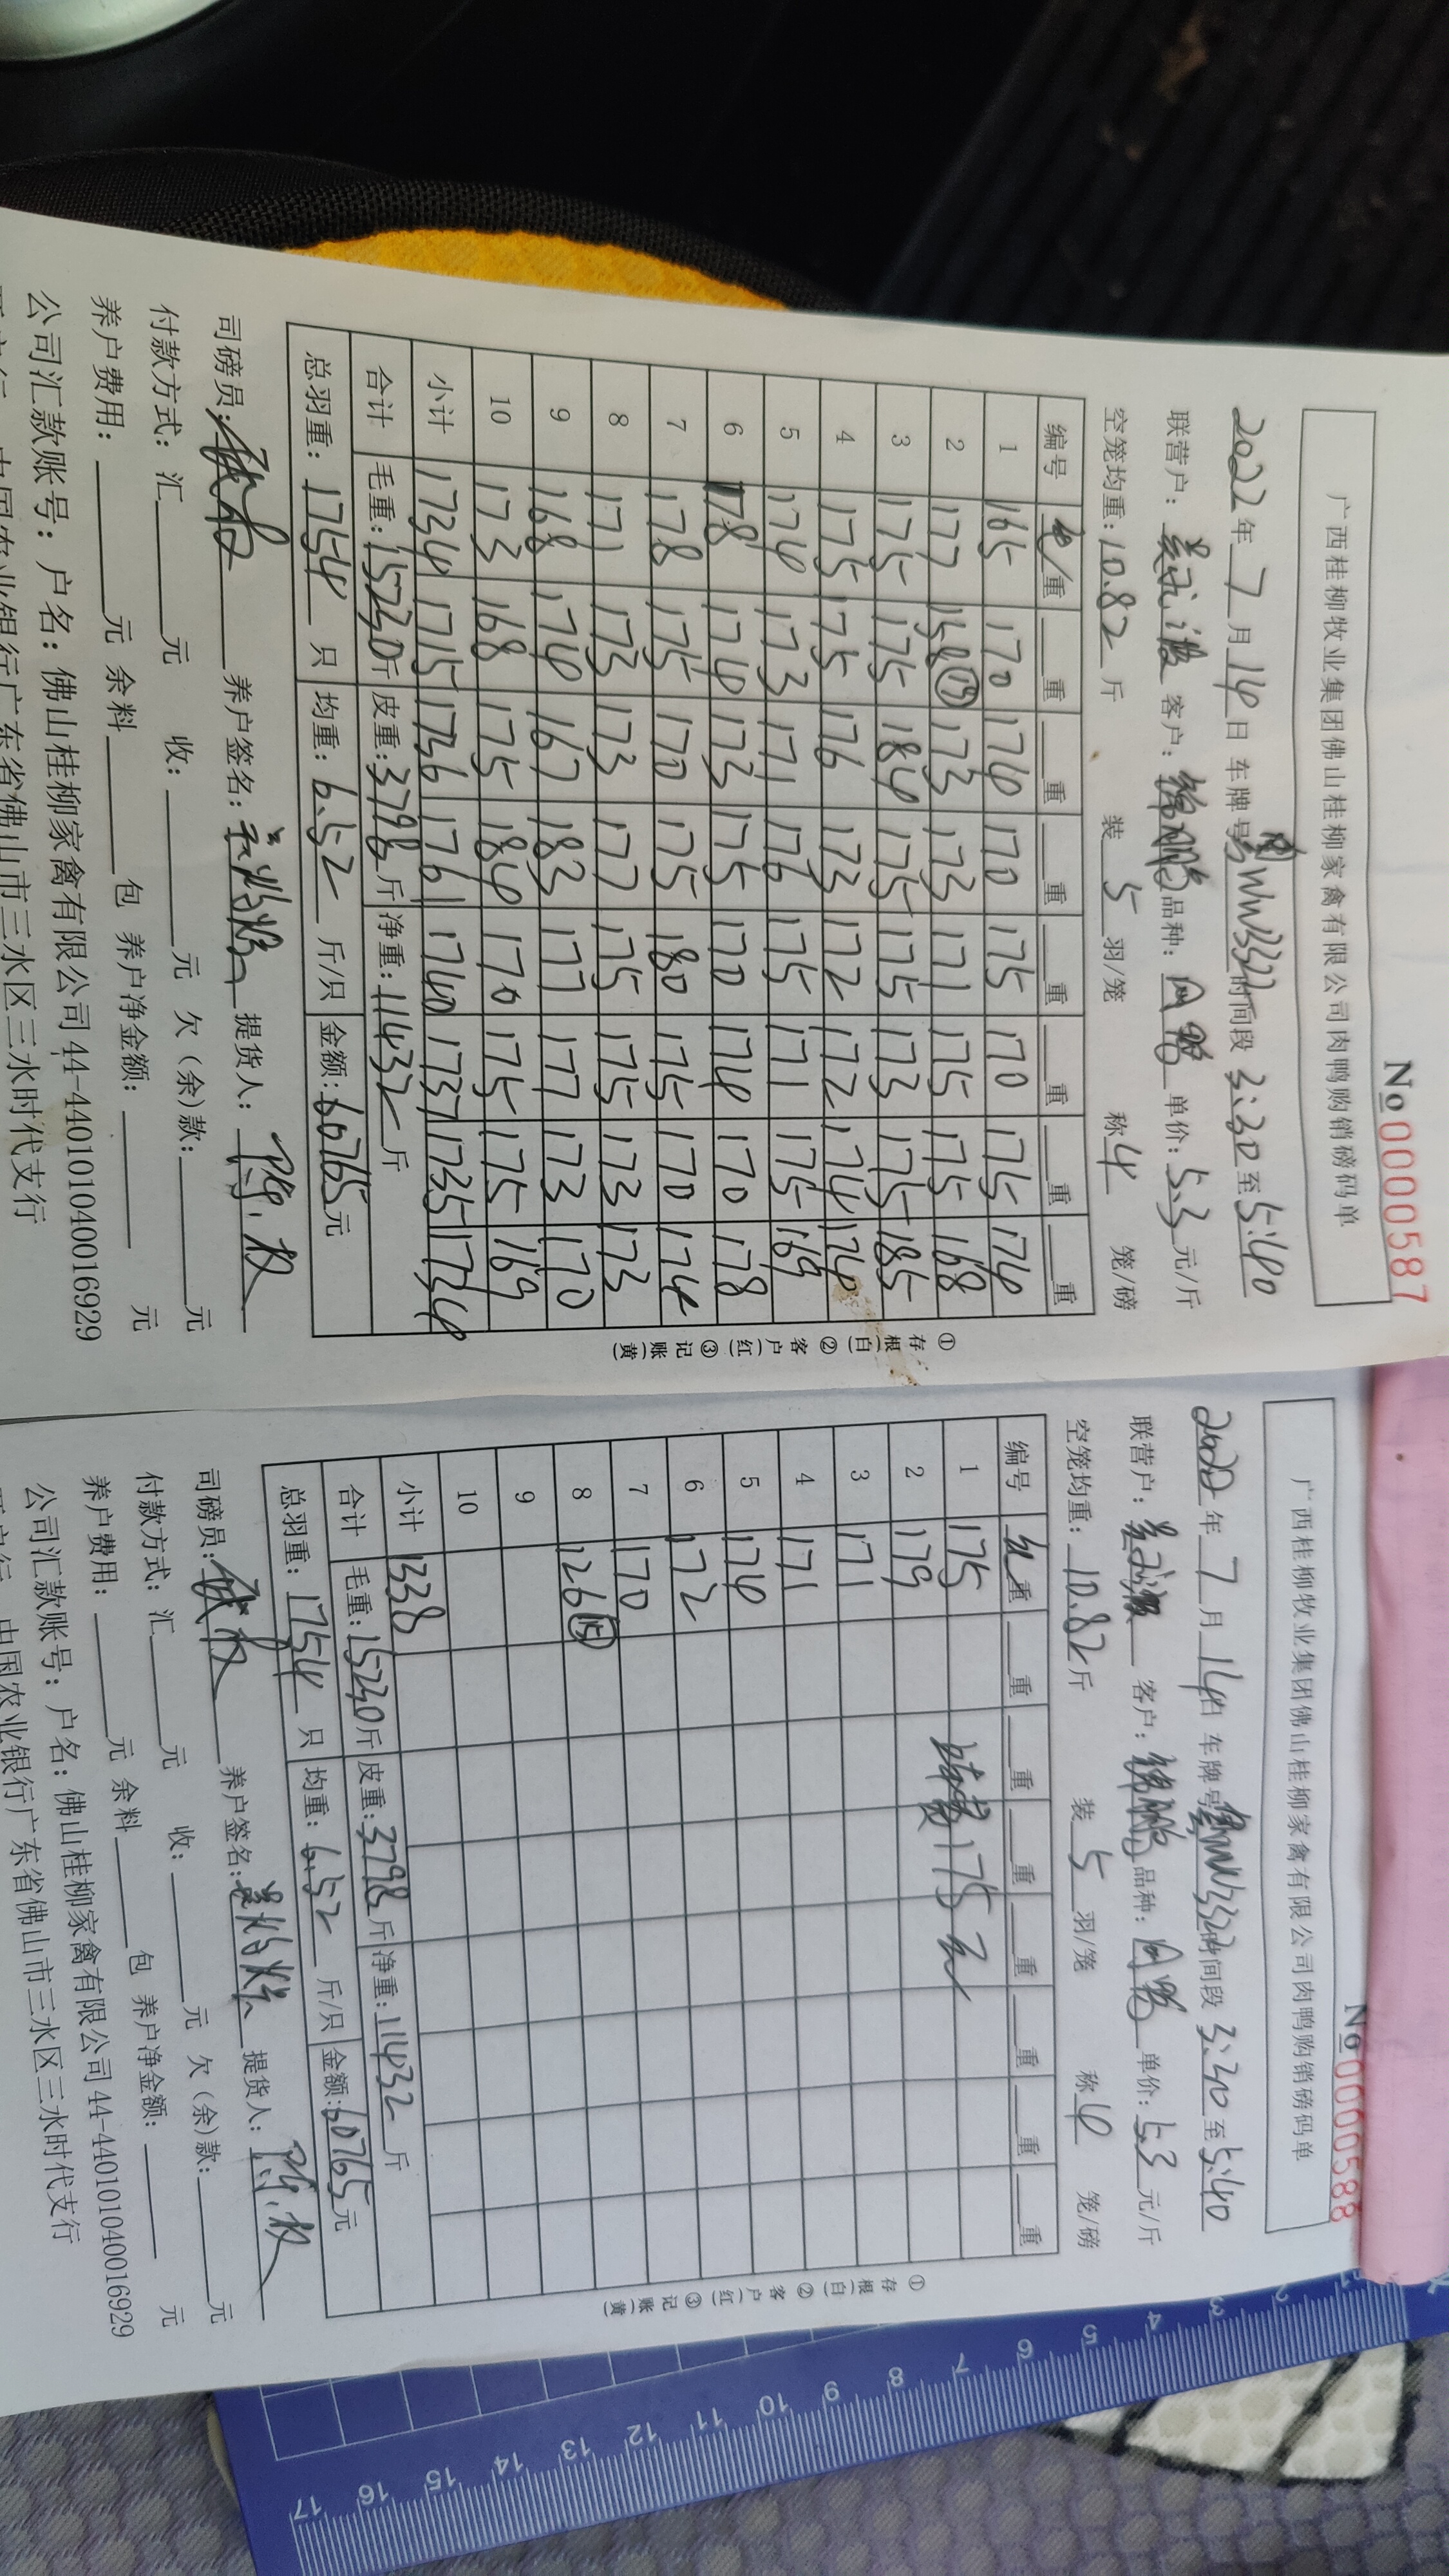 No 0000587
广西桂柳牧业集团佛山桂柳家禽有限公司肉鸭购销磅码单
2022年7月14日 车牌号 时间段 3:30至5:40
联营户： 客户： 品种： 单价：5.3元/斤
空笼均重：10.82斤 装5羽/笼 称4笼/磅
编号 重 重 重 重 重 重 重 重
1 165 170 174 170 175 170 175 174
2 177 158 173 173 171 175 175 168
3 175 175 184 175 175 173 175 185
4 175 175 176 173 172 172 174 174
5 174 173 171 176 175 171 175 169
6 178 174 173 175 170 174 170 178
7 178 175 170 175 180 175 170 174
8 171 173 173 177 175 175 173 173
9 168 174 167 183 177 177 173 170
10 173 168 175 184 170 175 175 169
小计 1734 1715 1736 1761 1740 1737 1735 1734
合计 毛重：15230斤 皮重：3798斤 净重：11432斤
总羽重：1754只 均重：6.52斤/只 金额：60765元
司磅员： 养户签名： 提货人：
付款方式：汇 元 收： 元 欠（余）款： 元
养户费用： 元 余料 包 养户净金额： 元
公司汇款账号：户名：佛山桂柳家禽有限公司 44-440101040016929
中国农业银行广东省佛山市三水区三水时代支行
①存根(白) ②客户(红) ③记账(黄)
No 0000588
广西桂柳牧业集团佛山桂柳家禽有限公司肉鸭购销磅码单
2022年7月14日 车牌号 时间段 3:30至5:40
联营户： 客户： 品种： 单价：5.3元/斤
空笼均重：10.82斤 装5羽/笼 称4笼/磅
编号 重 重 重 重 重 重 重 重
1 175
2 179 175
3 171
4 171
5 174
6 172
7 170
8 126
9
10
小计 1338
合计 毛重：15230斤 皮重：3798斤 净重：11432斤
总羽重：1754只 均重：6.52斤/只 金额：60765元
司磅员： 养户签名： 提货人：
付款方式：汇 元 收： 元 欠（余）款： 元
养户费用： 元 余料 包 养户净金额： 元
公司汇款账号：户名：佛山桂柳家禽有限公司 44-440101040016929
中国农业银行广东省佛山市三水区三水时代支行
①存根(白) ②客户(红) ③记账(黄)
2 3 4 5 6 7 8 9 10 11 12 13 14 15 16 17